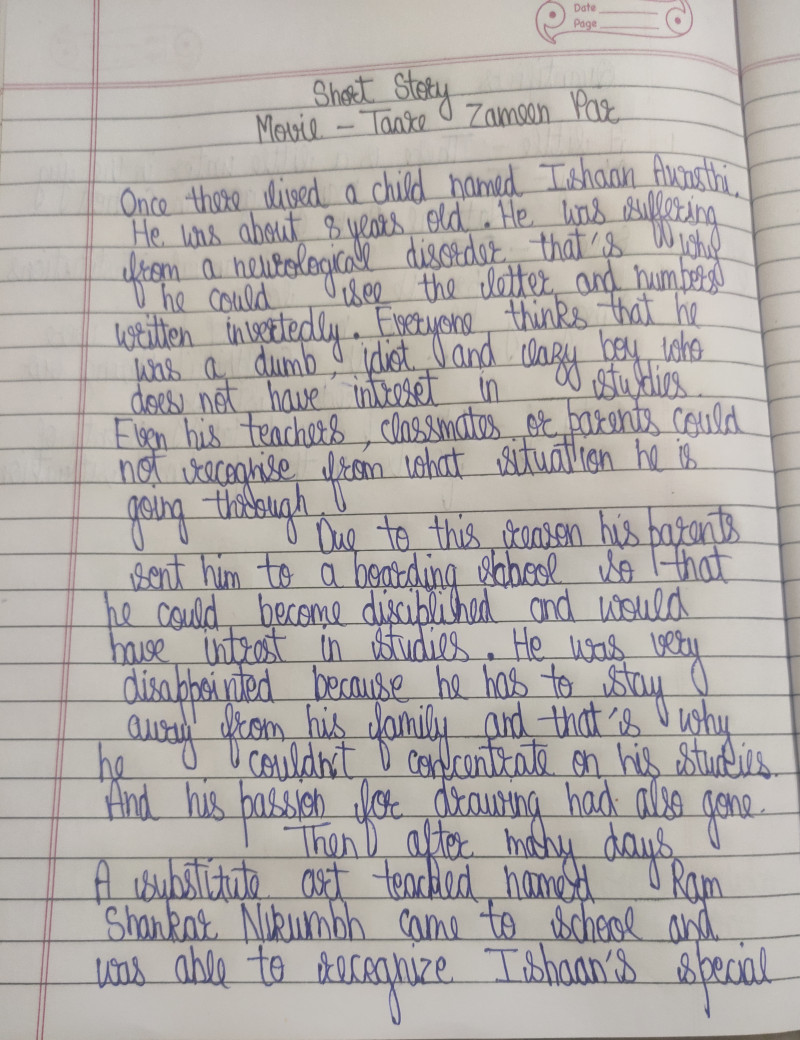 Date
Page
Short Story
Movie - Taare Zameen Par
Once there lived a child named Ishaan Awasthi.
He was about 8 years old. He was suffering
from a neurological disorder that's why
he could see the letter and numbers
written invertedly. Everyone thinks that he
was a dumb, idiot and lazy boy who
does not have intreset in studies.
Even his teachers, classmates or parents could
not recognise from what situation he is
going through.
Due to this reason his parents
sent him to a boarding school so that
he could become disciplined and would
have intrest in studies. He was very
disappointed because he has to stay
away from his family and that's why
he couldn't concentrate on his studies.
And his passion for drawing had also gone.
Then after many days
A substitute art teached named Ram
Shankar Nikumbh came to school and
was able to recognize Ishaan's special